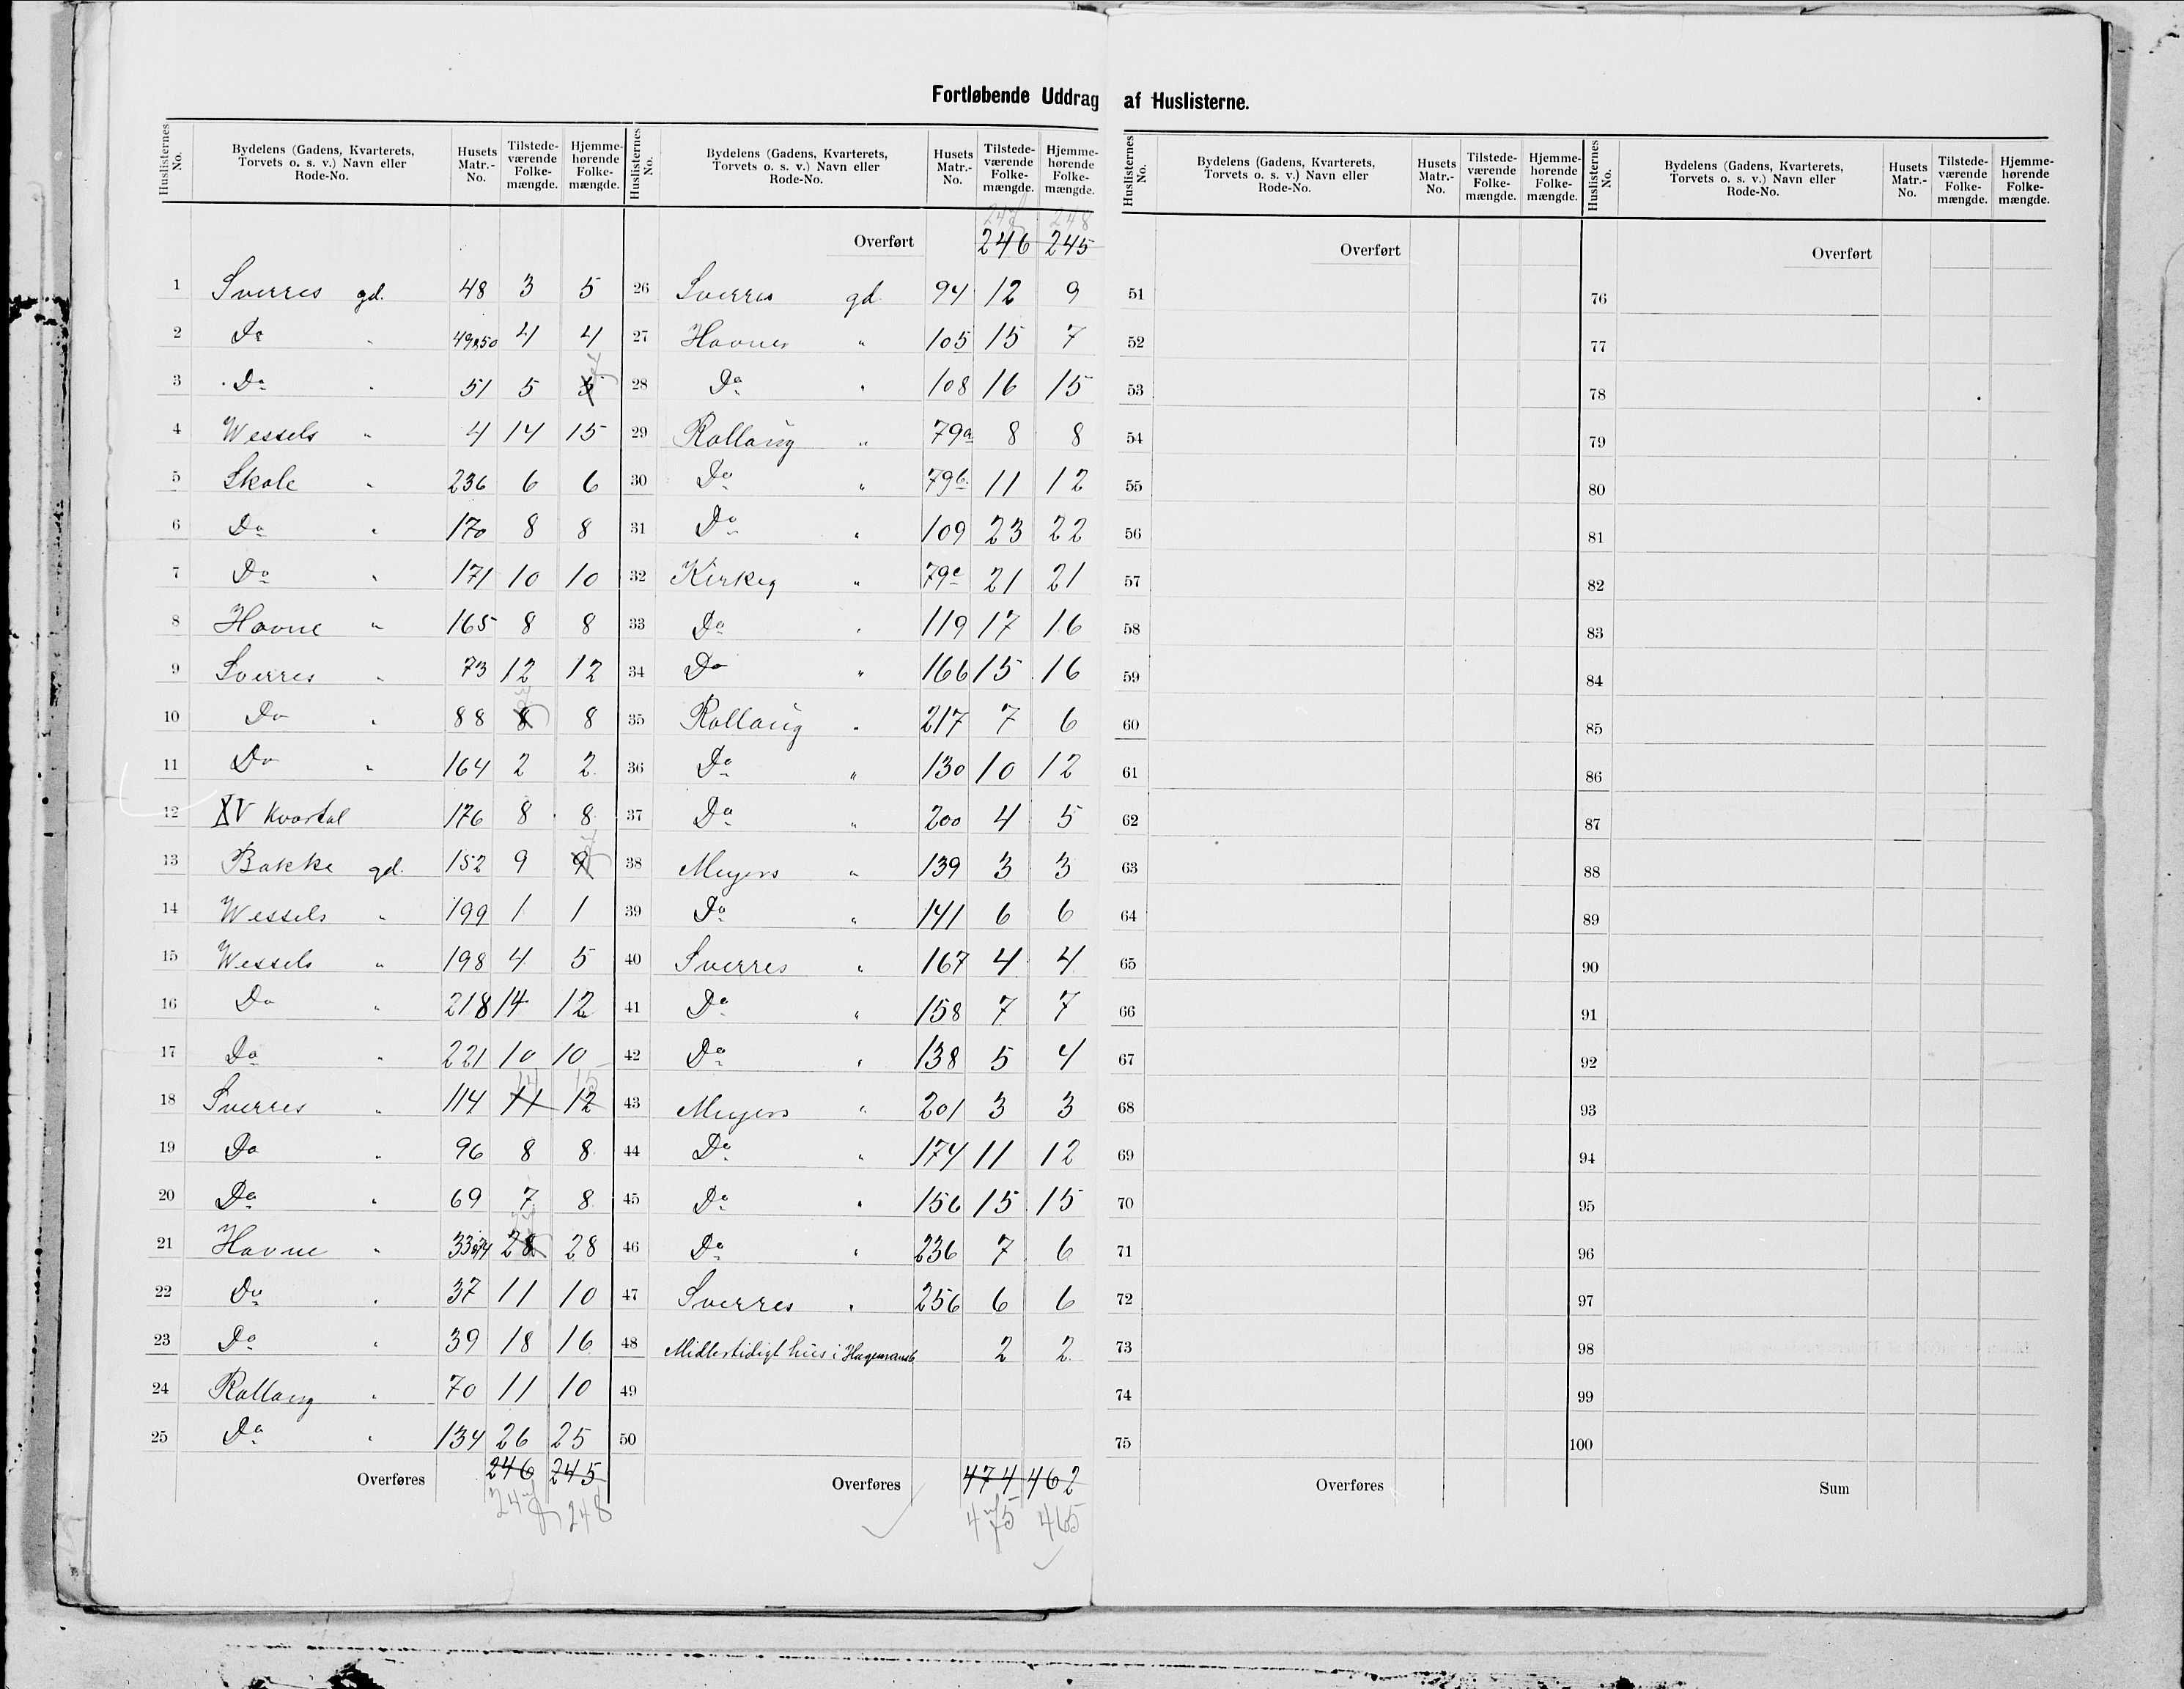 Fortløbende Uddrag af Huslisterne.
Huslisternes No. Bydelens (Gadens, Kvarterets, Torvets o. s. v.) Navn eller Rode-No. Husets Matr.-No. Tilstedeværende Folkemængde. Hjemmehørende Folkemængde.
1 Sverres gd. 48 3 5
2 Do " 49&50 4 4
3 Do " 51 5 5 4
4 Wessels " 4 14 15
5 Skole " 236 6 6
6 Do " 170 8 8
7 Do " 171 10 10
8 Havne " 165 8 8
9 Sverres " 73 12 12
10 Do " 88 8 8
11 Do " 164 2 2
12 XV Kvartal 176 8 8
13 Bakke gd. 152 9 9
14 Wessels " 199 1 1
15 Wessels " 198 4 5
16 Do " 218 14 12
17 Do " 221 10 10
18 Sverres " 114 11 14 12 15
19 Do " 96 8 8
20 Do " 69 7 8
21 Havne " 33&34 28 28
22 Do " 37 11 10
23 Do " 39 18 16
24 Rollaug " 70 11 10
25 Do " 134 26 25
Overføres 246 245
247 248
Huslisternes No. Bydelens (Gadens, Kvarterets, Torvets o. s. v.) Navn eller Rode-No. Husets Matr.-No. Tilstedeværende Folkemængde. Hjemmehørende Folkemængde.
247 248
Overført 246 245
26 Sverres gd. 94 12 9
27 Havnes " 105 15 7
28 Do " 108 16 15
29 Rollaug " 79a 8 8
30 Do " 79b 11 12
31 Do " 109 23 22
32 Kirkeg " 79c 21 21
33 Do " 119 17 16
34 Do " 166 15 16
35 Rollaug " 217 7 6
36 Do " 130 10 12
37 Do " 200 4 5
38 Meyers " 139 3 3
39 Do " 141 6 6
40 Sverres " 167 4 4
41 Do " 158 7 7
42 Do " 138 5 4
43 Meyers " 201 3 3
44 Do " 174 11 12
45 Do " 156 15 15
46 Do " 236 7 6
47 Sverres " 256 6 6
48 Midlertidigt hus i 2 2
49
50
Overføres 474 462
475 465
Huslisternes No. Bydelens (Gadens, Kvarterets, Torvets o. s. v.) Navn eller Rode-No. Husets Matr.-No. Tilstedeværende Folkemængde. Hjemmehørende Folkemængde.
Overført
51
52
53
54
55
56
57
58
59
60
61
62
63
64
65
66
67
68
69
70
71
72
73
74
75
Overføres
Huslisternes No. Bydelens (Gadens, Kvarterets, Torvets o. s. v.) Navn eller Rode-No. Husets Matr.-No. Tilstedeværende Folkemængde. Hjemmehørende Folkemængde.
Overført
76
77
78
79
80
81
82
83
84
85
86
87
88
89
90
91
92
93
94
95
96
97
98
99
100
Sum